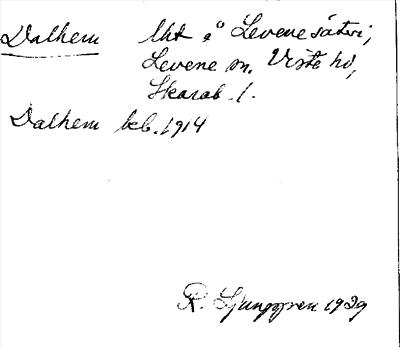 Dalhem lht å Levene sätri,
Levene sn. Viste hd,
Skarab. l.
Dalhem beb. 1914
R. Ljunggren 1929